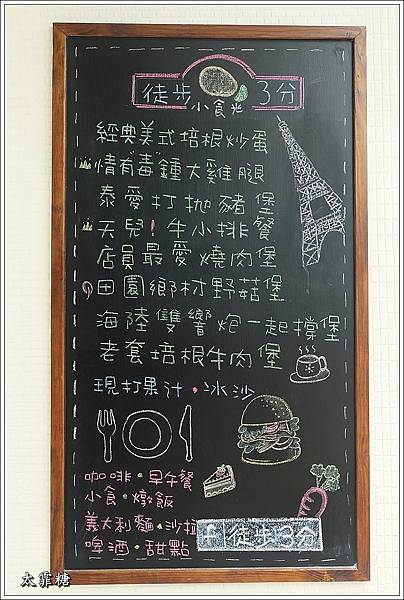 徒步 小食光 3分
經典美式培根炒蛋
情有毒鍾大雞腿
泰愛打拋豬堡
天兒！牛小排餐
店員最愛燒肉堡
田園鄉村野菇堡
海陸雙響炮一起撐堡
老套培根牛肉堡
現打果汁・冰沙
咖啡・早午餐
小食・燉飯
義大利麵・沙拉
啤酒・甜點
f 徒步3分
太霏糖